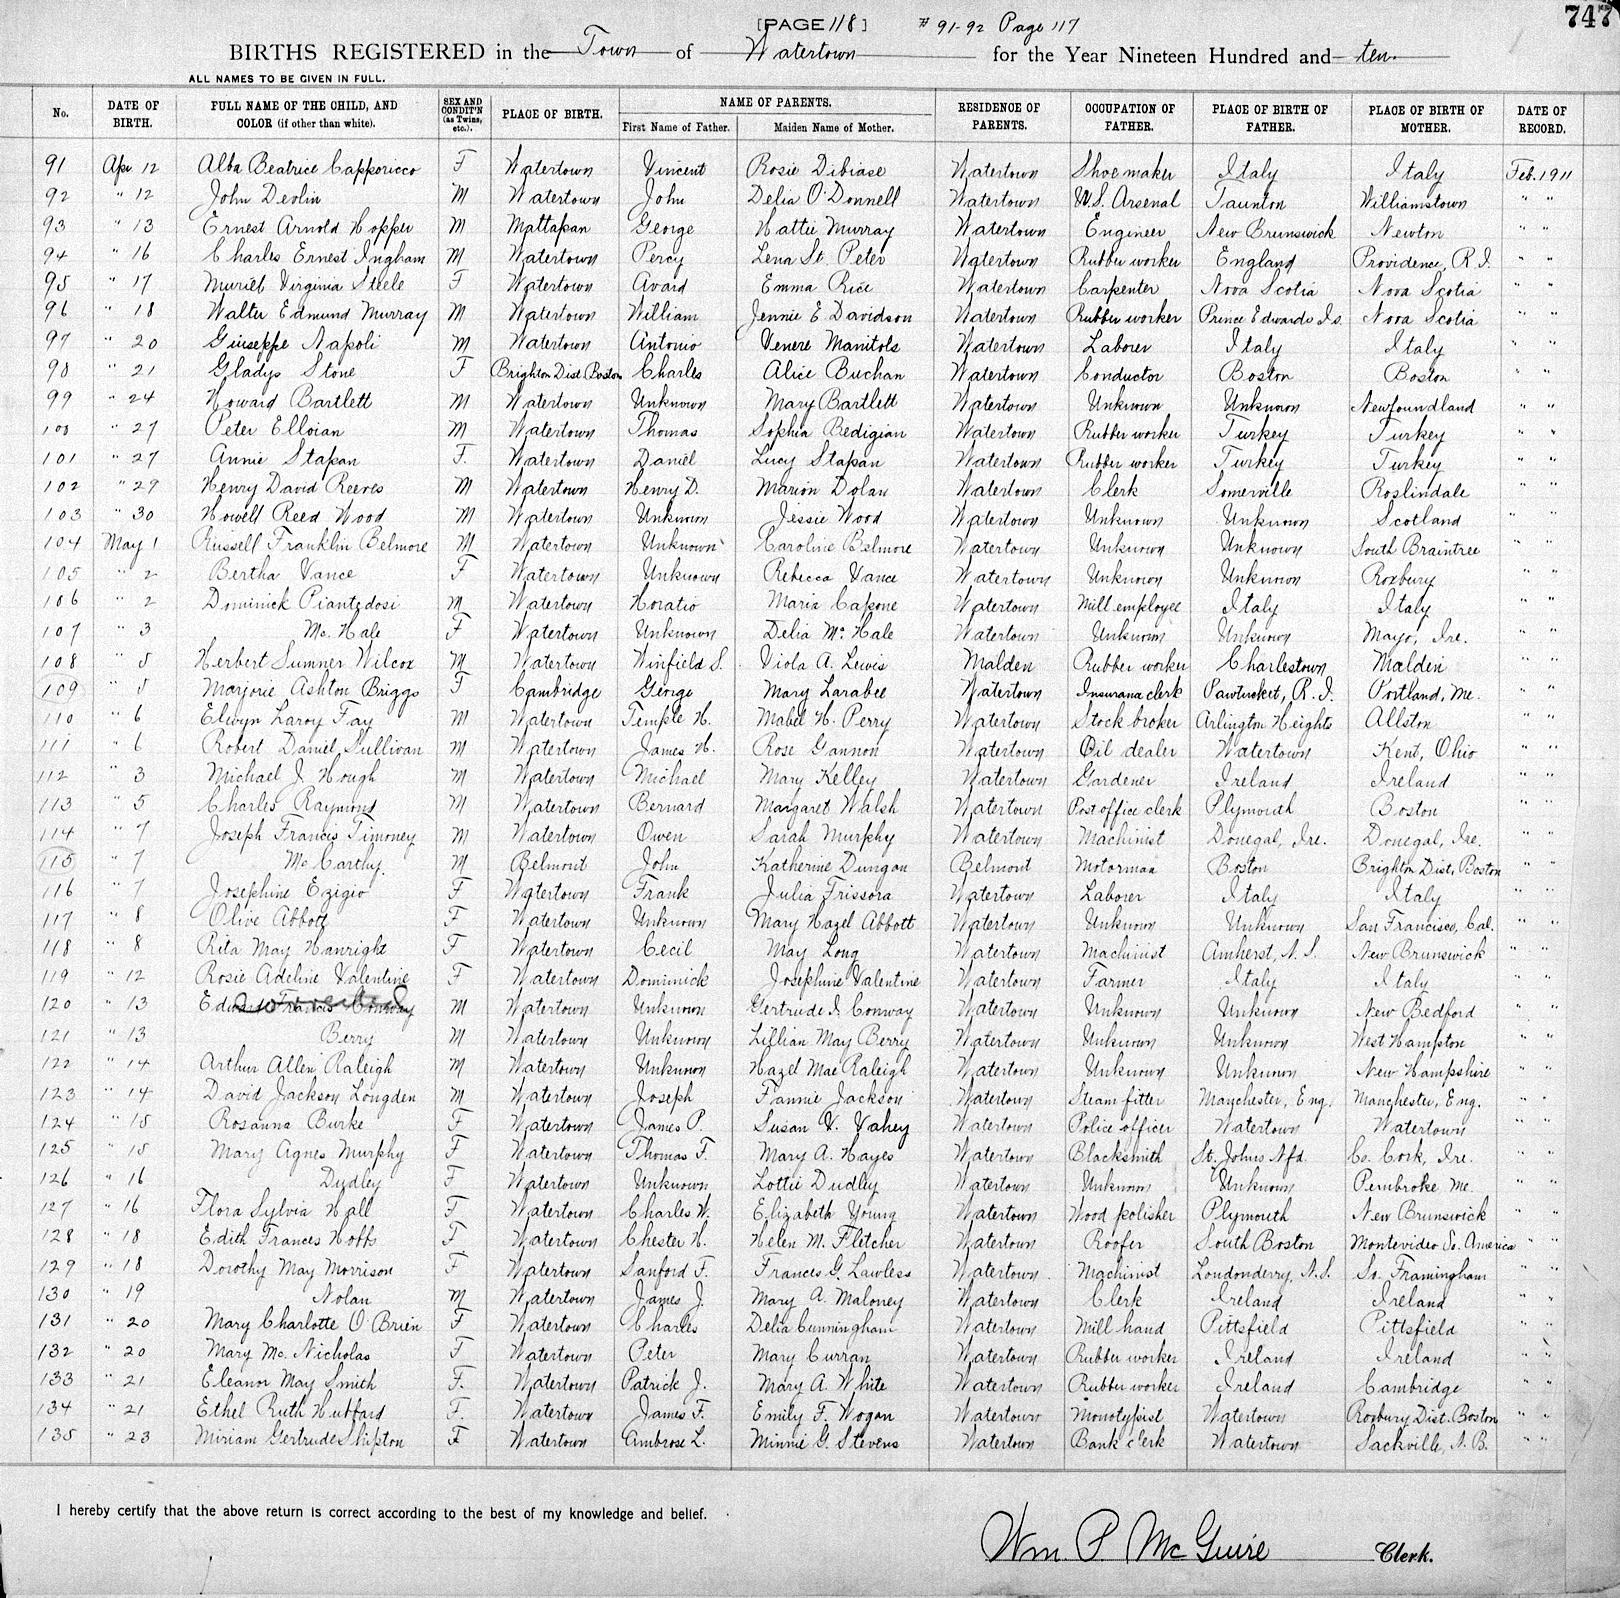 [PAGE 118] # 91-92 Page 117 747
BIRTHS REGISTERED in the Town of Watertown for the Year Nineteen Hundred and ten.
ALL NAMES TO BE GIVEN IN FULL.
No. DATE OF BIRTH. FULL NAME OF THE CHILD, AND COLOR (if other than white). SEX AND CONDIT'N (as Twins, etc.). PLACE OF BIRTH. NAME OF PARENTS. First Name of Father. Maiden Name of Mother. RESIDENCE OF PARENTS. OCCUPATION OF FATHER. PLACE OF BIRTH OF FATHER. PLACE OF BIRTH OF MOTHER. DATE OF RECORD.
91 Apr 12 Alba Beatrice Capporicco F Watertown Vincent Rosie Dibiase Watertown Shoe maker Italy Italy Feb. 1911
92 " 12 John Devlin M Watertown John Delia O'Donnell Watertown U.S. Arsenal Taunton Williamstown " "
93 " 13 Ernest Arnold Hopper M Mattapan George Hattie Murray Watertown Engineer New Brunswick Newton " "
94 " 16 Charles Ernest Ingham M Watertown Percy Lena St. Peter Watertown Rubber worker England Providence, R.I. " "
95 " 17 Muriel Virginia Steele F Watertown Avard Emma Rice Watertown Carpenter Nova Scotia Nova Scotia " "
96 " 18 Walter Edmund Murray M Watertown William Jennie E Davidson Watertown Rubber worker Prince Edwards Is. Nova Scotia " "
97 " 20 Giuseppe Napoli M Watertown Antonio Venere Manitols Watertown Laborer Italy Italy " "
98 " 21 Gladys Stone F Brighton Dist. Boston Charles Alice Buchan Watertown Conductor Boston Boston " "
99 " 24 Howard Bartlett M Watertown Unknown Mary Bartlett Watertown Unknown Unknown Newfoundland " "
100 " 27 Peter Elloian M Watertown Thomas Sophia Bedigian Watertown Rubber worker Turkey Turkey " "
101 " 27 Annie Stapan F. Watertown Daniel Lucy Stapan Watertown Rubber worker Turkey Turkey " "
102 " 29 Henry David Reeves M Watertown Henry D. Marion Dolan Watertown Clerk Somerville Roslindale " "
103 " 30 Howell Reed Wood M Watertown Unknown Jessie Wood Watertown Unknown Unknown Scotland " "
104 May 1 Russell Franklin Belmore M Watertown Unknown Caroline Belmore Watertown Unknown Unknown South Braintree " "
105 " 2 Bertha Vance F Watertown Unknown Rebecca Vance Watertown Unknown Unknown Roxbury " "
106 " 2 Dominick Piantedosi M Watertown Horatio Maria Capone Watertown Mill employee Italy Italy " "
107 " 3 Mc. Hale F Watertown Unknown Delia Mc Hale Watertown Unknown Unknown Mayo, Ire. " "
108 " 5 Herbert Sumner Wilcox M Watertown Winfield S. Viola A. Lewis Malden Rubber worker Charlestown Malden " "
109 " 5 Marjorie Ashton Briggs F Cambridge George Mary Larabee Watertown Insurance clerk Pawtucket, R.I. Portland, Me. " "
110 " 6 Elwyn Laroy Fay M Watertown Temple H. Mabel H. Perry Watertown Stock broker Arlington Heights Allston " "
111 " 6 Robert Daniel Sullivan M Watertown James H. Rose Gannon Watertown Oil dealer Watertown Kent, Ohio " "
112 " 3 Michael J. Hough M Watertown Michael Mary Kelley Watertown Gardener Ireland Ireland " "
113 " 5 Charles Raymond M Watertown Bernard Margaret Walsh Watertown Post office clerk Plymouth Boston " "
114 " 7 Joseph Francis Timoney M Watertown Owen Sarah Murphy Watertown Machinist Donegal, Ire. Donegal, Ire. " "
115 " 7 Mc Carthy. M Belmont John Katherine Dungan Belmont Motorman Boston Brighton Dist, Boston " "
116 " 7 Josephine Ezigio F Watertown Frank Julia Frissora Watertown Laborer Italy Italy " "
117 " 8 Olive Abbott F Watertown Unknown Mary Hazel Abbott Watertown Unknown Unknown San Francisco, Cal. " "
118 " 8 Rita May Hanright F Watertown Cecil May Long Watertown Machinist Amherst, N.S. New Brunswick " "
119 " 12 Rosie Adeline Valentine F Watertown Dominick Josephine Valentine Watertown Farmer Italy Italy " "
120 " 13 Edward Francis Conway M Watertown Unknown Gertrude I. Conway Watertown Unknown Unknown New Bedford " "
121 " 13 Berry M Watertown Unknown Lillian May Berry Watertown Unknown Unknown West Hampton " "
122 " 14 Arthur Allen Raleigh M Watertown Unknown Hazel Mae Raleigh Watertown Unknown Unknown New Hampshire " "
123 " 14 David Jackson Longden M Watertown Joseph Fannie Jackson Watertown Steam fitter Manchester, Eng. Manchester, Eng. " "
124 " 15 Rosanna Burke F Watertown James P. Susan V. Vahey Watertown Police officer Watertown Watertown " "
125 " 15 Mary Agnes Murphy F Watertown Thomas F. Mary A. Hayes Watertown Blacksmith St. Johns Nfd. Co. Cork, Ire. " "
126 " 16 Dudley F Watertown Unknown Lottie Dudley Watertown Unknown Unknown Pembroke Me. " "
127 " 16 Flora Sylvia Hall F Watertown Charles W. Elizabeth Young Watertown Wood polisher Plymouth New Brunswick " "
128 " 18 Edith Frances Hobbs F Watertown Chester H. Helen M. Fletcher Watertown Roofer South Boston Montevideo So. America " "
129 " 18 Dorothy May Morrison F Watertown Sanford F. Frances G. Lawless Watertown Machinist Londonderry, N.S. So. Framingham " "
130 " 19 Nolan M Watertown James J. Mary A. Maloney Watertown Clerk Ireland Ireland " "
131 " 20 Mary Charlotte O'Brien F Watertown Charles Delia Cunningham Watertown Mill hand Pittsfield Pittsfield " "
132 " 20 Mary Mc. Nicholas F Watertown Peter Mary Curran Watertown Rubber worker Ireland Ireland " "
133 " 21 Eleanor May Smith F. Watertown Patrick J. Mary A. White Watertown Rubber worker Ireland Cambridge " "
134 " 21 Ethel Ruth Hubbard F. Watertown James F. Emily F. Wogan Watertown Monotypist Watertown Roxbury Dist. Boston " "
135 " 23 Miriam Gertrude Shipton F Watertown Ambrose L. Minnie G. Stevens Watertown Bank clerk Watertown Sackville, N.B. " "
I hereby certify that the above return is correct according to the best of my knowledge and belief.
Wm. P. McGuire Clerk.